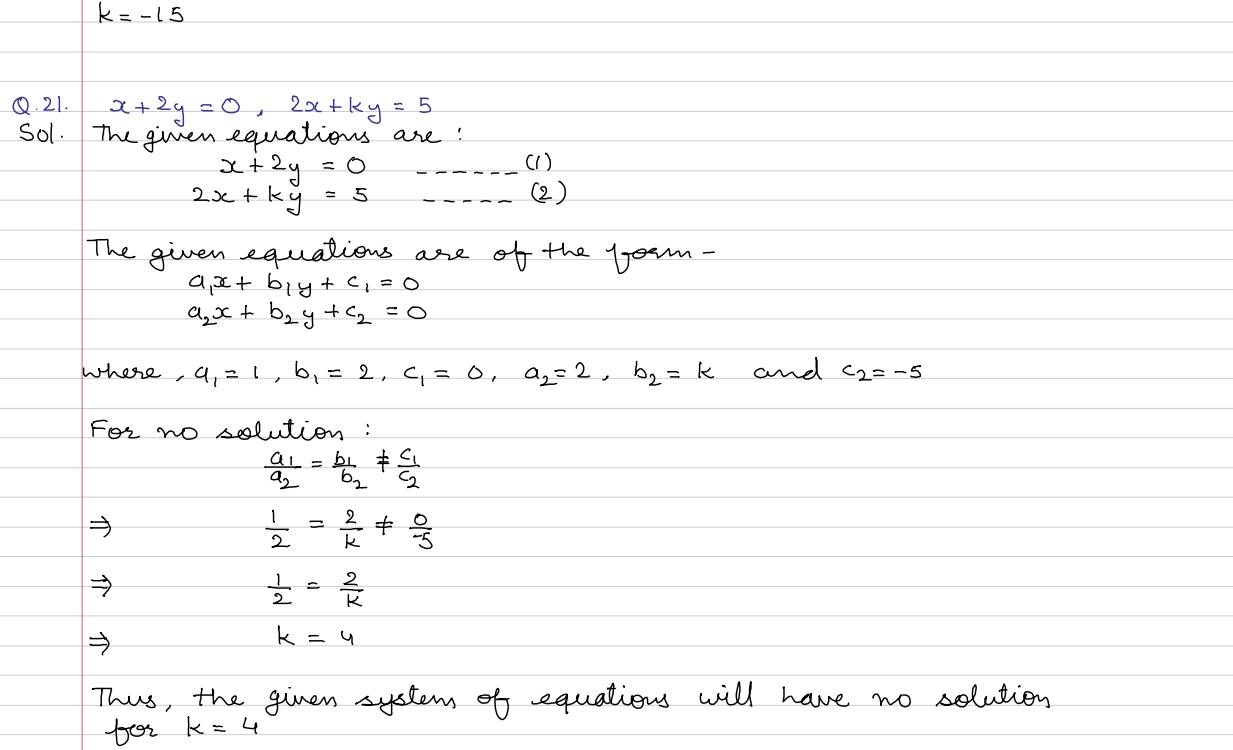 k = -15
Q.21. x + 2y = 0 , 2x + ky = 5
Sol. The given equations are :
x + 2y = 0 ------ (1)
2x + ky = 5 ----- (2)
The given equations are of the form -
a₁x + b₁y + c₁ = 0
a₂x + b₂y + c₂ = 0
where , a₁ = 1 , b₁ = 2 , c₁ = 0 , a₂ = 2 , b₂ = k and c₂ = -5
For no solution :
a₁/a₂ = b₁/b₂ ≠ c₁/c₂
⇒ 1/2 = 2/k ≠ 0/-5
⇒ 1/2 = 2/k
⇒ k = 4
Thus, the given system of equations will have no solution
for k = 4